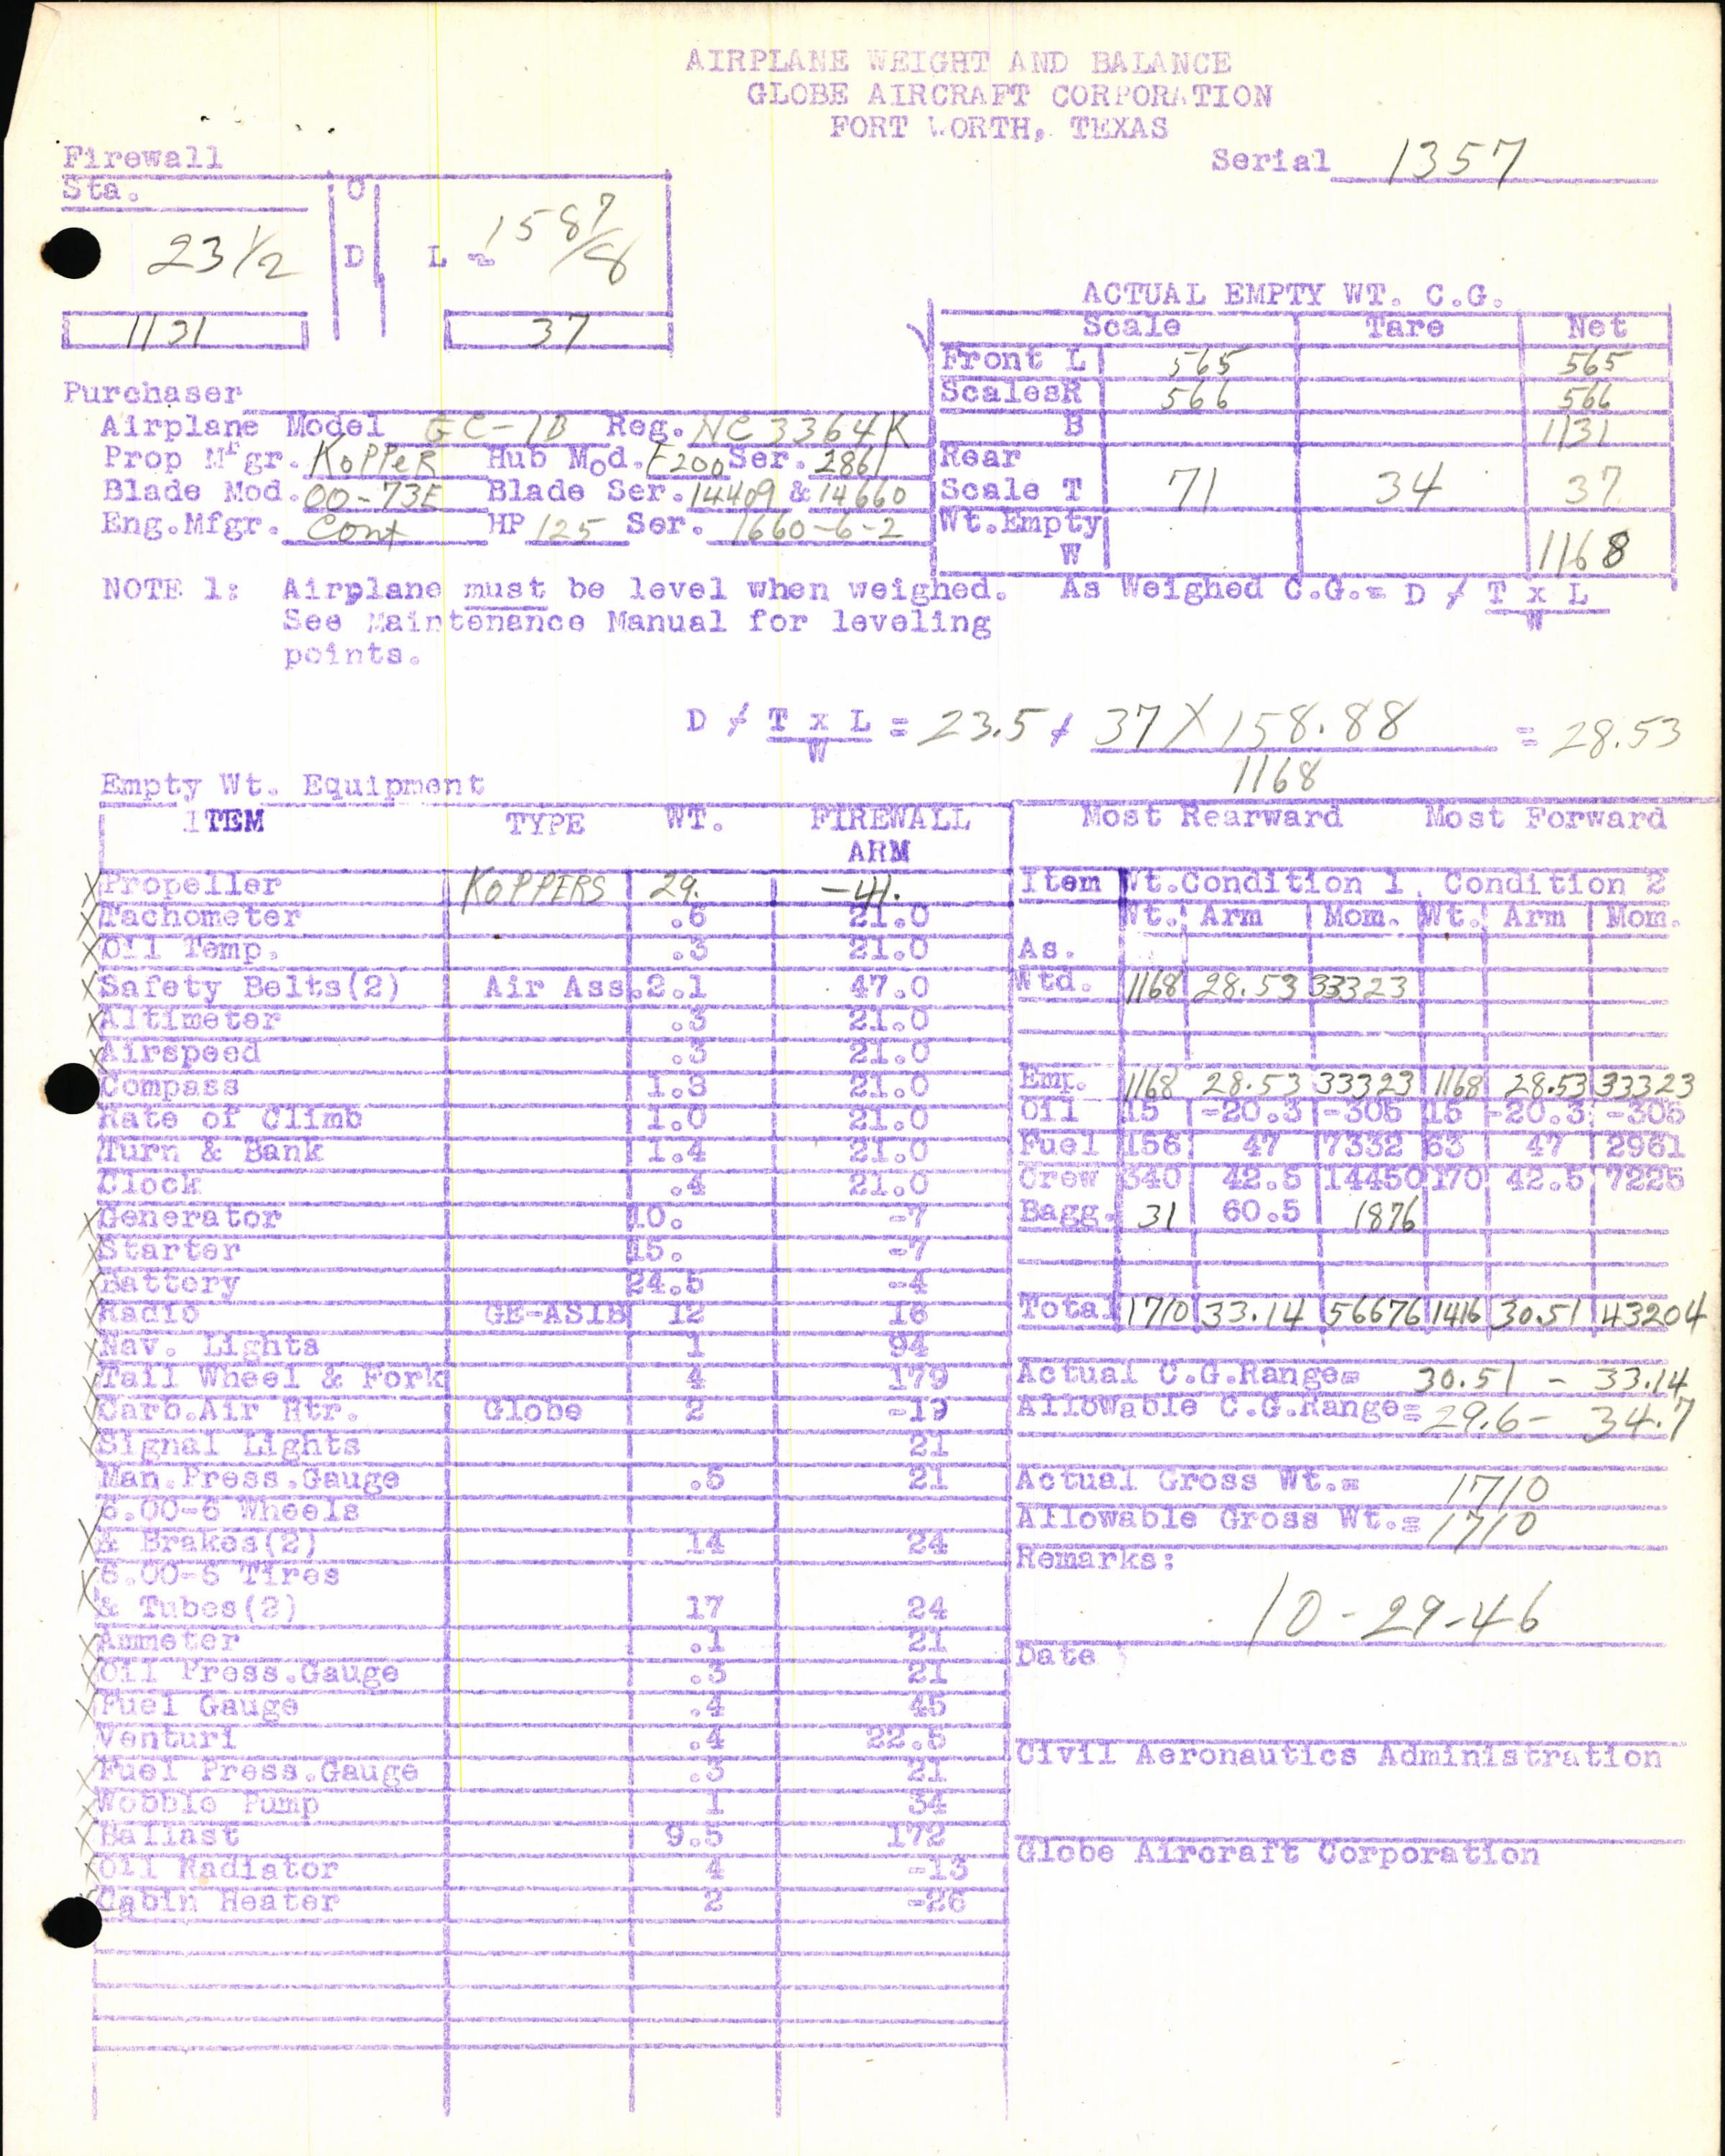 AIRPLANE WEIGHT AND BALANCE
GLOBE AIRCRAFT CORPORATION
FORT WORTH, TEXAS
Serial 1357
Firewall
Sta. O
23 1/2 D L = 158 7/8
1131 37
ACTUAL EMPTY WT. C.G.
Scale Tare Net
Front L 565 565
Scales R 566 566
B 1131
Rear
Scale T 71 34 37
Wt.Empty
W 1168
Purchaser
Airplane Model GC-1B Reg. NC3364K
Prop Mfgr. KOPPER Hub Mod. F200 Ser. 2861
Blade Mod. 00-73E Blade Ser. 14409 & 14660
Eng.Mfgr. Cont HP 125 Ser. 1660-6-2
NOTE 1: Airplane must be level when weighed.
See Maintenance Manual for leveling
points.
As Weighed C.G.= D ≠ T x L
W
D ≠ T x L = 23.5 + 37 X 158.88 = 28.53
W 1168
Empty Wt. Equipment
ITEM TYPE WT. FIREWALL
ARM
X Propeller KOPPERS 29. -41.
X Tachometer .6 21.0
X Oil Temp. .3 21.0
X Safety Belts(2) Air Ass. 2.1 47.0
X Altimeter .3 21.0
X Airspeed .3 21.0
Compass 1.3 21.0
Rate of Climb 1.0 21.0
Turn & Bank 1.4 21.0
Clock .4 21.0
X Generator 10. -7
X Starter 15. -7
X Battery 24.5 -4
X Radio GE-AS1B 12 16
X Nav. Lights 1 94
X Tail Wheel & Fork 4 179
X Carb.Air Htr. Globe 2 -19
X Signal Lights 21
Man.Press.Gauge .5 21
6.00-6 Wheels
X & Brakes(2) 14 24
X 6.00-6 Tires
& Tubes(2) 17 24
X Ammeter .1 21
X Oil Press.Gauge .3 21
X Fuel Gauge .4 45
Venturi .4 22.5
X Fuel Press.Gauge .3 21
X Wobble Pump 1 34
X Ballast 9.5 172
X Oil Radiator 4 -13
Cabin Heater 2 -26
Most Rearward Most Forward
Item Wt.Condition 1. Condition 2
Wt. Arm Mom. Wt. Arm Mom.
As.
Wtd. 1168 28.53 33323
Emp. 1168 28.53 33323 1168 28.53 33323
Oil 15 -20.3 -305 15 -20.3 -305
Fuel 156 47 7332 63 47 2961
Crew 340 42.5 14450 170 42.5 7225
Bagg. 31 60.5 1876
Total 1710 33.14 56676 1416 30.51 43204
Actual C.G.Range= 30.51 - 33.14
Allowable C.G.Range= 29.6 - 34.7
Actual Gross Wt.= 1710
Allowable Gross Wt.= 1710
Remarks:
10-29-46
Date
Civil Aeronautics Administration
Globe Aircraft Corporation